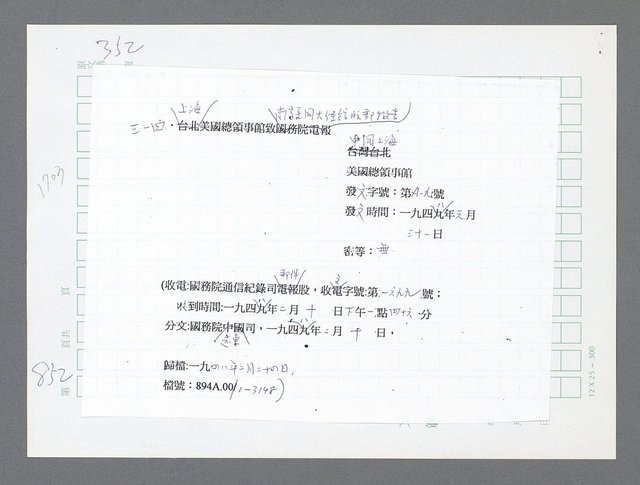 352
上海
三一四、台北美國總領事館致國務院電報
中國上海
台灣台北
美國總領事館
發文字號：第A-九號
發文時間：一九四九年元月
三十一日
密等：無
郵件
文
(收電:國務院通信紀錄司電報股，收電字號:第一六九九號；
收到時間:一九四九年二月十日下午一點四十六分
分文:國務院中國司，一九四九年二月十日，
遠東
歸檔:一九四八年三月二十四日，
檔號：894A.00/1-3148)
1703
頁
頁共
852
第
12 X 25 = 300